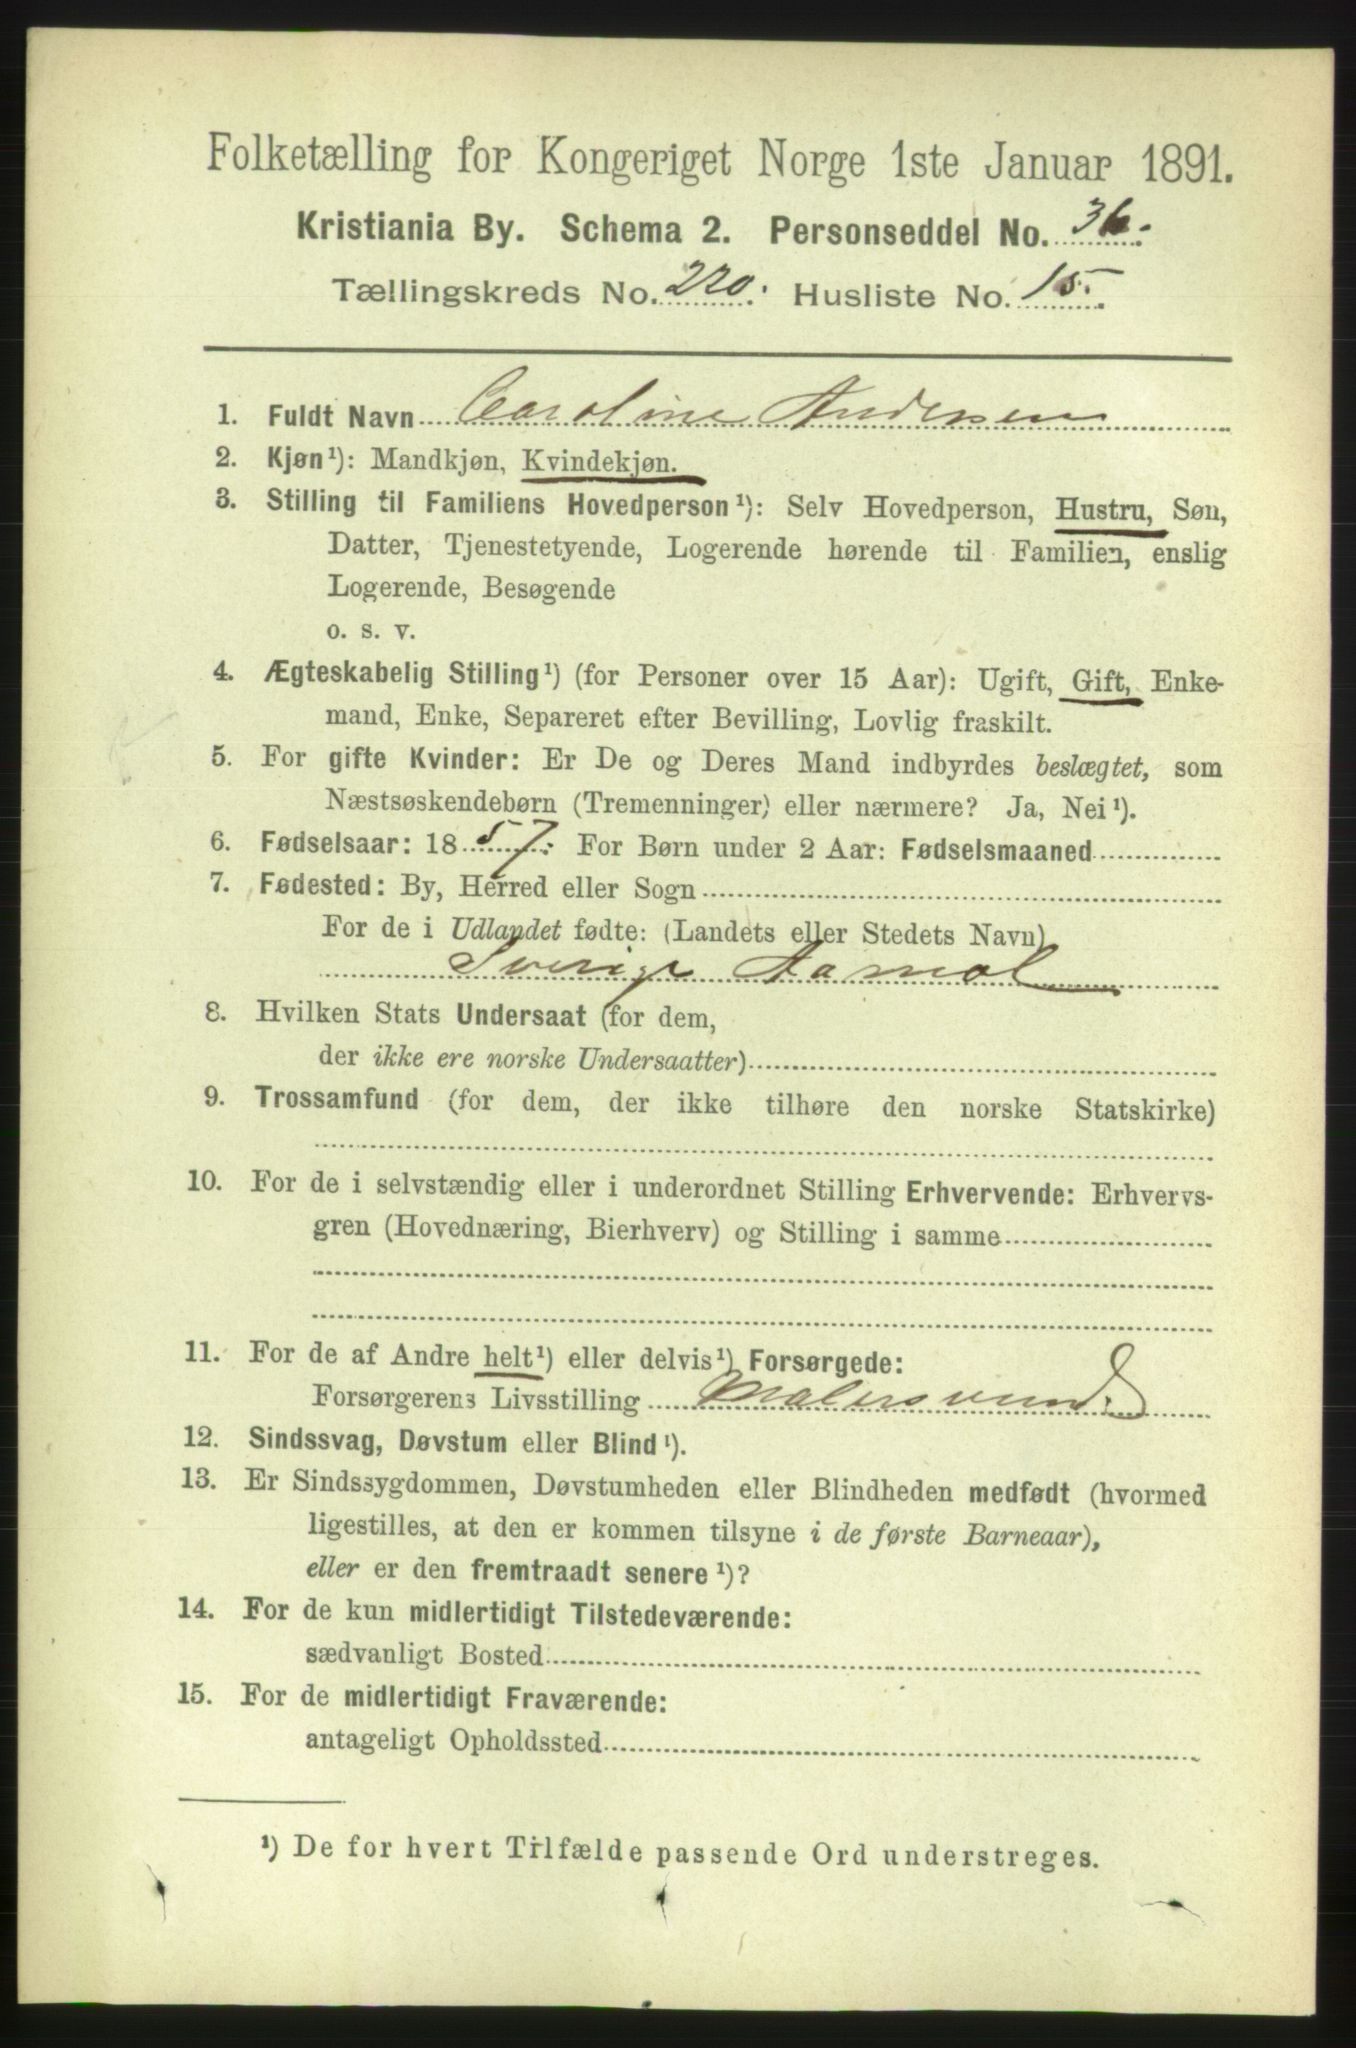 Folketælling for Kongeriget Norge 1ste Januar 1891.
Kristiania By. Schema 2. Personseddel No. 36.
Tællingskreds No. 220. Husliste No. 15.
1. Fuldt Navn Caroline Andersen
2. Kjøn¹): Mandkjøn, Kvindekjøn.
3. Stilling til Familiens Hovedperson¹): Selv Hovedperson, Hustru, Søn,
Datter, Tjenestetyende, Logerende hørende til Familien, enslig
Logerende, Besøgende
o. s. v.
4. Ægteskabelig Stilling¹) (for Personer over 15 Aar): Ugift, Gift, Enke-
mand, Enke, Separeret efter Bevilling, Lovlig fraskilt.
5. For gifte Kvinder: Er De og Deres Mand indbyrdes beslægtet, som
Næstsøskendebørn (Tremenninger) eller nærmere? Ja, Nei¹).
6. Fødselsaar: 1857. For Børn under 2 Aar: Fødselsmaaned
7. Fødested: By, Herred eller Sogn
For de i Udlandet fødte: (Landets eller Stedets Navn)
Sverige Aamol
8. Hvilken Stats Undersaat (for dem,
der ikke ere norske Undersaatter)
9. Trossamfund (for dem, der ikke tilhøre den norske Statskirke)
10. For de i selvstændig eller i underordnet Stilling Erhvervende: Erhvervs-
gren (Hovednæring, Bierhverv) og Stilling i samme
11. For de af Andre helt¹) eller delvis¹) Forsørgede:
Forsørgerens Livsstilling Malersvend
12. Sindssvag, Døvstum eller Blind¹).
13. Er Sindssygdommen, Døvstumheden eller Blindheden medfødt (hvormed
ligestilles, at den er kommen tilsyne i de første Barneaar),
eller er den fremtraadt senere¹)?
14. For de kun midlertidigt Tilstedeværende:
sædvanligt Bosted
15. For de midlertidigt Fraværende:
antageligt Opholdssted
¹) De for hvert Tilfælde passende Ord understreges.